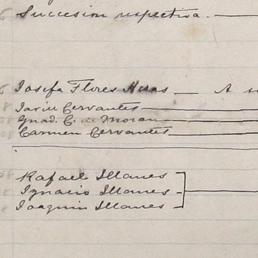 Succesion respectiva.
Josefa Flores Haas — A
Javier Cervantes
Gnad. C. de Moran
Carmen Cervantes
Rafael Illanes
Ignacio Illanes
Joaquin Illanes